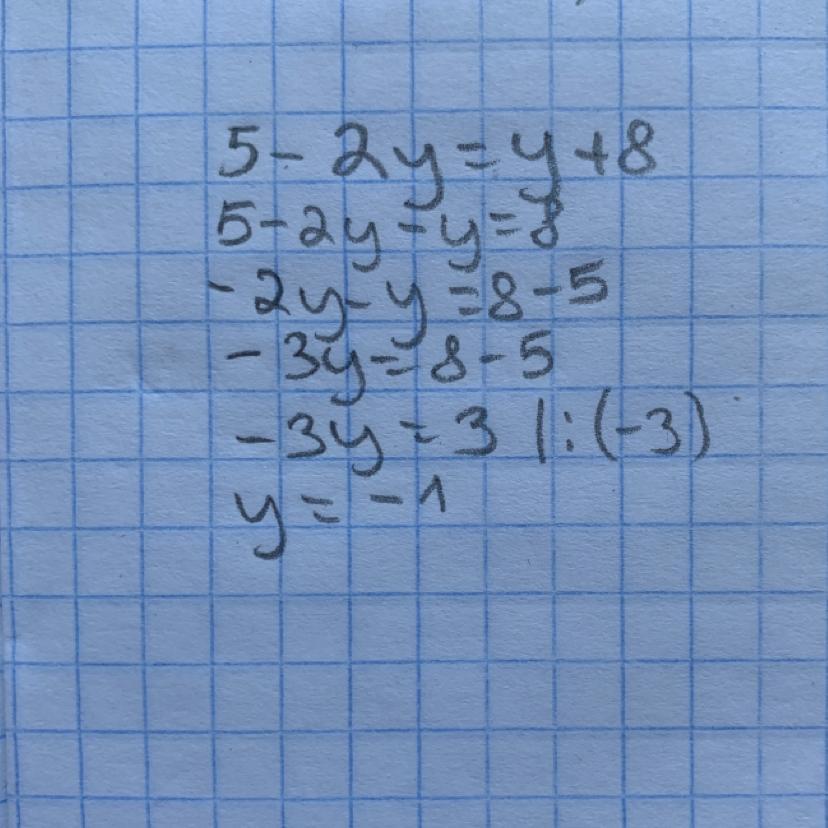 5 - 2y = y + 8
5 - 2y - y = 8
- 2y - y = 8 - 5
- 3y = 8 - 5
- 3y = 3 | : (-3)
y = - 1